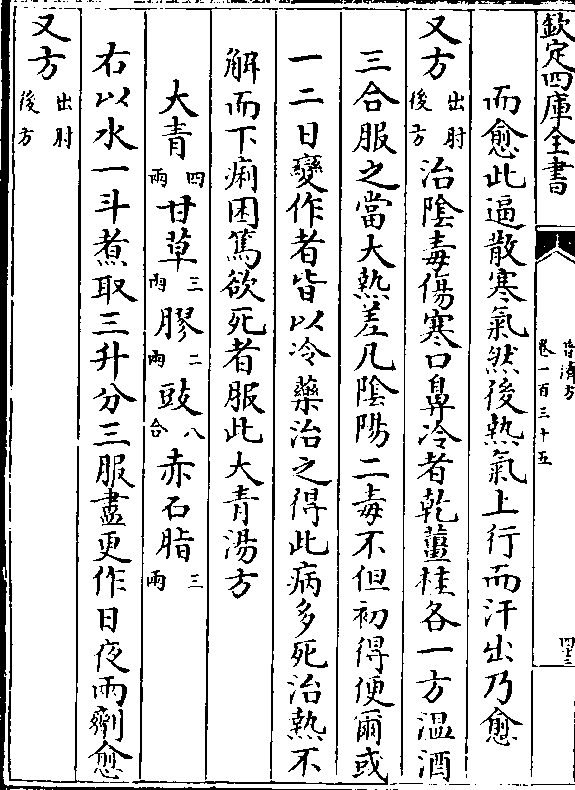 欽定四庫全書
普濟方
卷一百三十五
四十三
而愈此逼散寒氣然後熱氣上行而汗出乃愈
又方出肘後方治陰毒傷寒口鼻冷者乾薑桂各一方温酒
三合服之當大熱差凡陰陽二毒不但初得便爾或
一二日變作者皆以冷藥治之得此病多死治熱不
解而下痢困篤欲死者服此大青湯方
大青四兩甘草三兩膠二兩豉八合赤石脂三兩
右以水一斗煮取三升分三服盡更作日夜兩劑愈
又方出肘後方